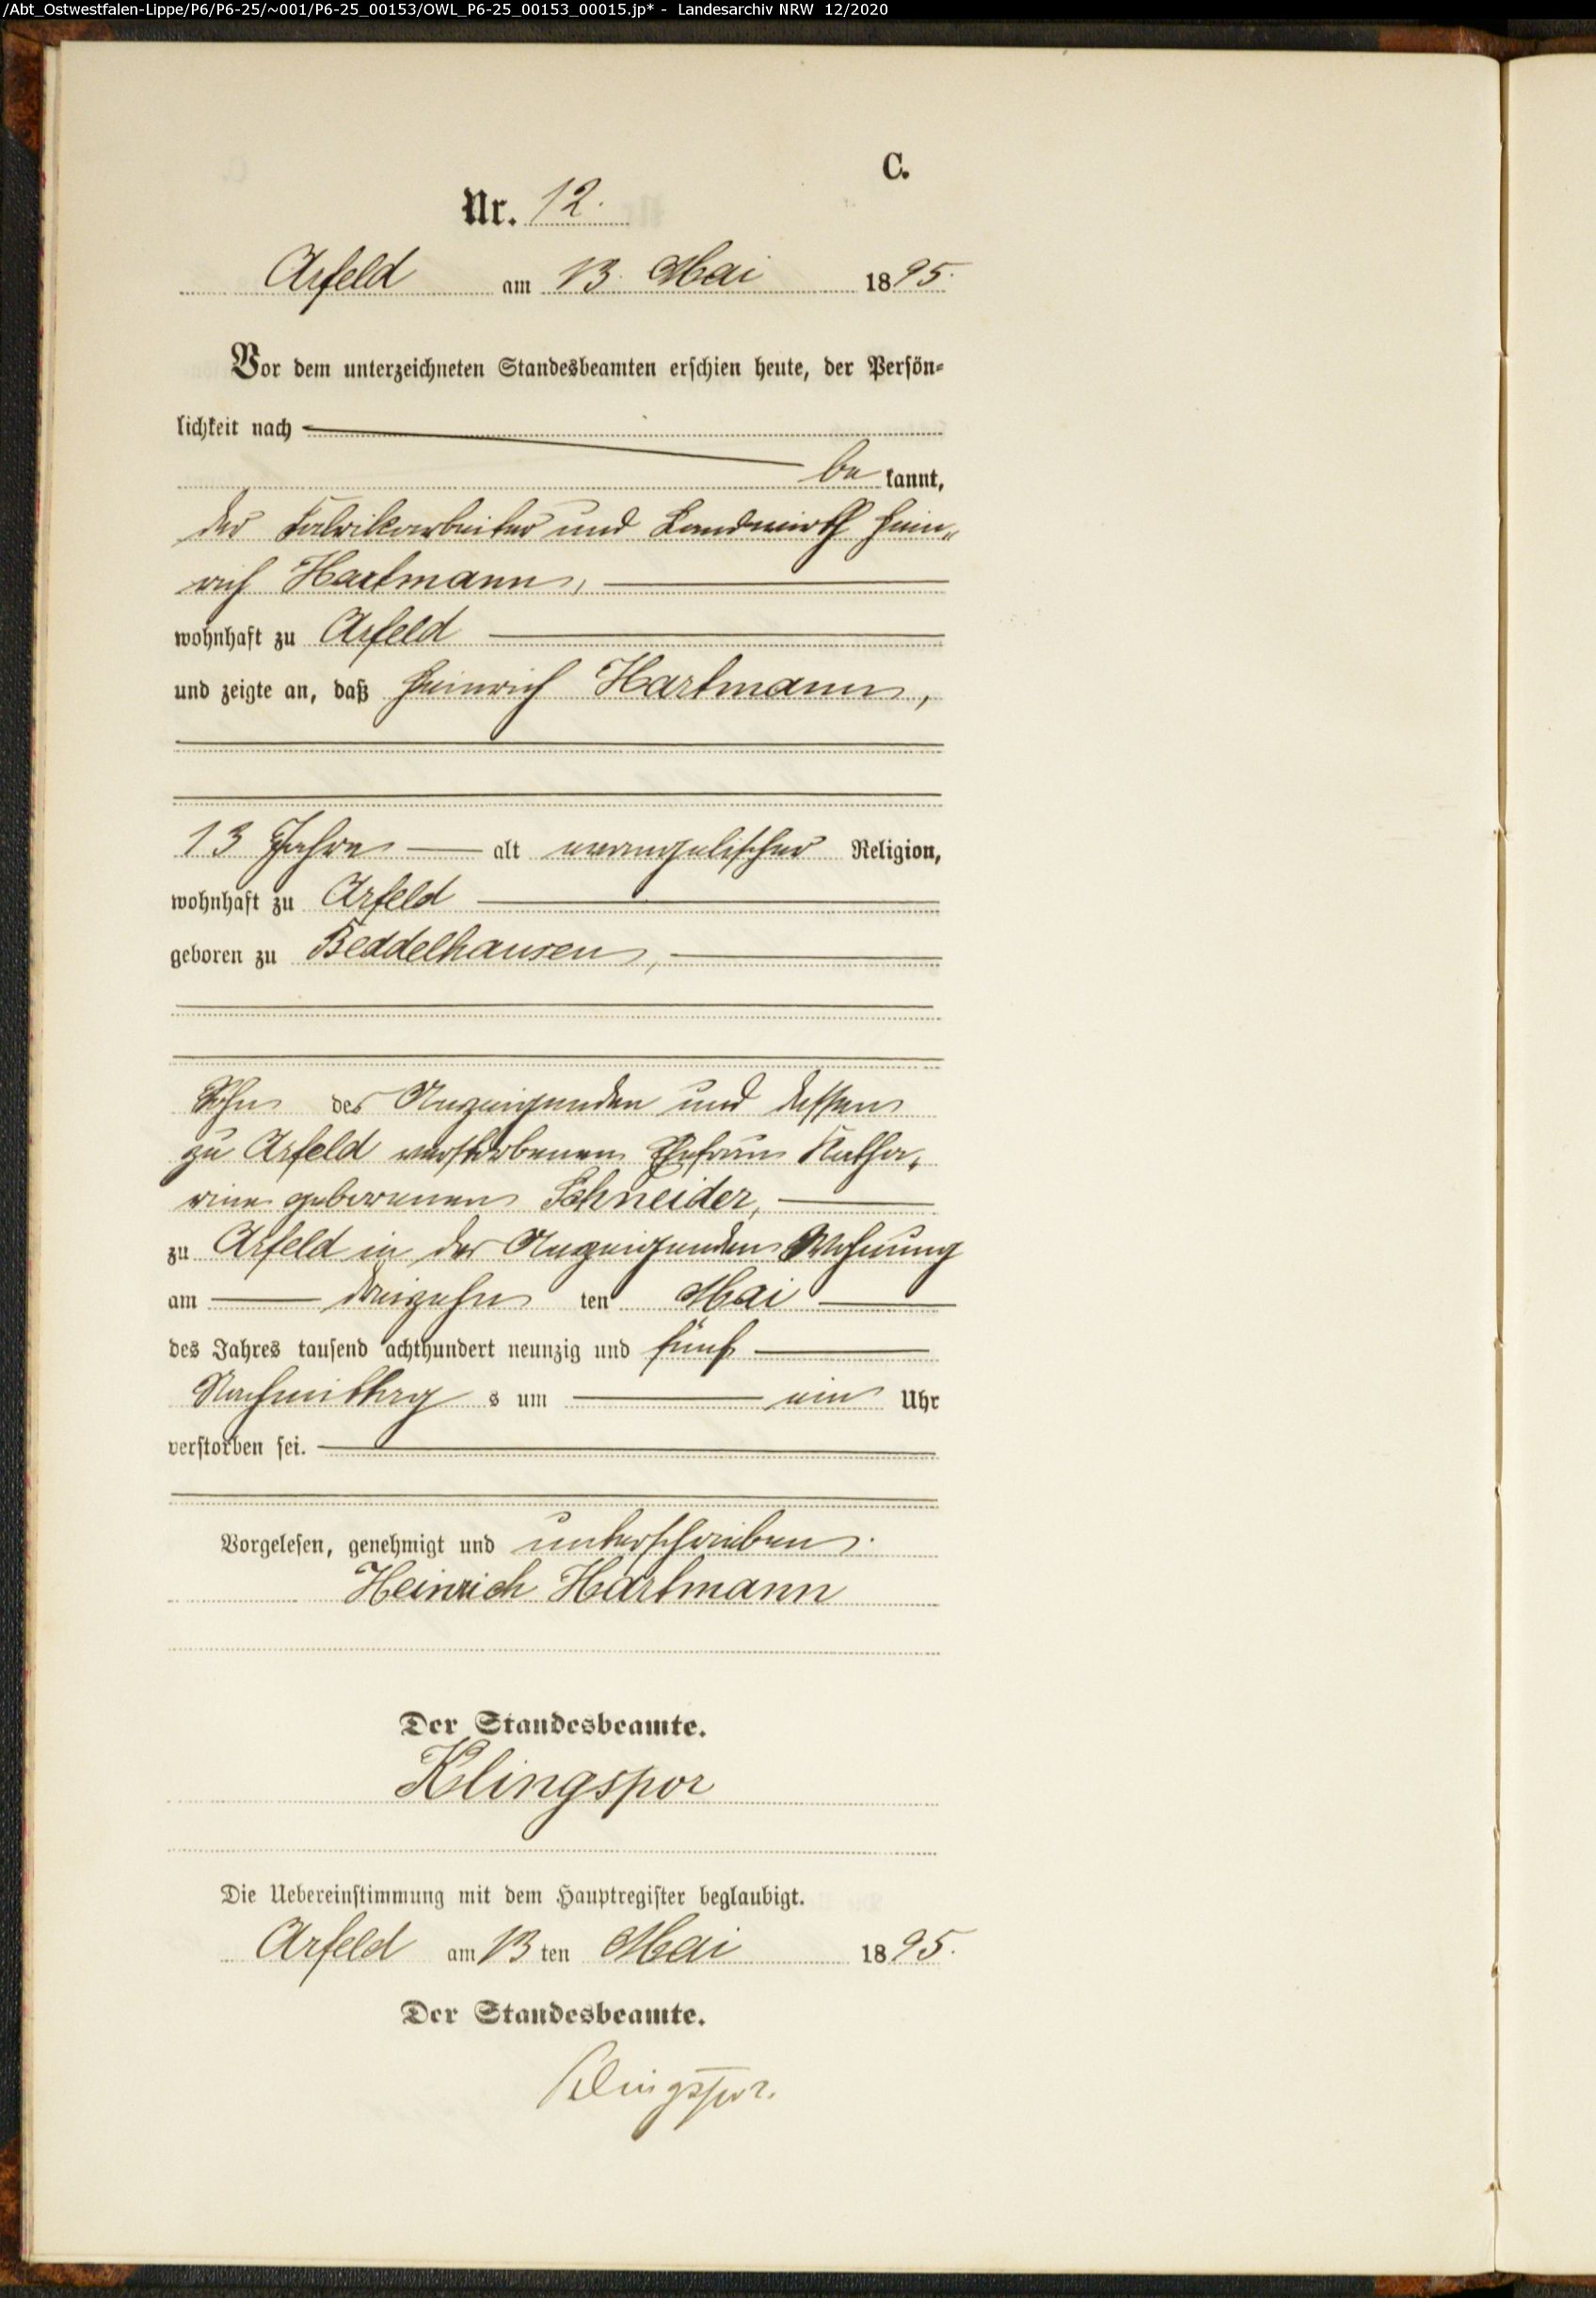 /Abt_Ostwestfalen-Lippe/P6/P6-25/~001/P6-25_00153/OWL_P6-25_00153_00015.jp* - Landesarchiv NRW 12/2020
C.
Nr. 12.
Arfeld am 13. Mai 1895.
Vor dem unterzeichneten Standesbeamten erschien heute, der Persön-
lichkeit nach
be kannt,
der Fabrikarbeiter und Landwirth Hein„
rich Hartmann,
wohnhaft zu Arfeld
und zeigte an, daß Heinrich Hartmann,
13 Jahre alt evangelischer Religion,
wohnhaft zu Arfeld
geboren zu Beddelhausen,
Sohn des Anzeigenden und dessen
zu Arfeld verstorbenen Ehefrau Katha„
rine geborenen Schneider,
zu Arfeld in des Anzeigenden Wohnung
am dreizehn ten Mai
des Jahres tausend achthundert neunzig und fünf
Nachmittag s um ein Uhr
verstorben sei.
Vorgelesen, genehmigt und unterschrieben.
Heinrich Hartmann
Der Standesbeamte.
Klingspor
Die Uebereinstimmung mit dem Hauptregister beglaubigt.
Arfeld am 13 ten Mai 1895.
Der Standesbeamte.
Klingspor.